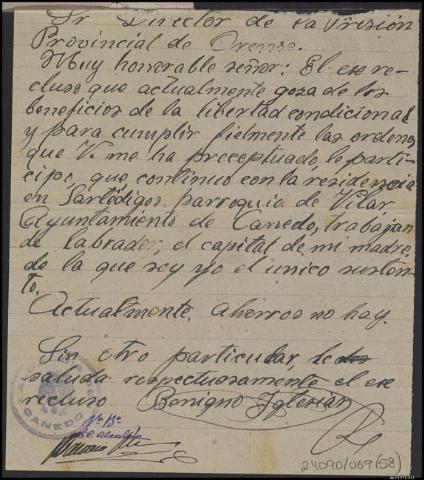 Sr Director de la Prisión
Provincial de Orense.
Muy honorable señor: El ex re-
cluso que actualmente goza de los
beneficios de la libertad condicional
y para cumplir fielmente las ordenes
que V. me ha preceptuado, le parti-
cipo, que continuo con la residencia
en Sartédigos, parroquia de Vilar
Ayuntamiento de Canedo, trabajan
do labrador, el capital de mi madre,
de la que soy yo el unico susten-
to.
Actualmente, ahorros no hay.
Sin otro particular, le
saluda respectuosamente el ex
recluso Benigno Iglesias
CANEDO
Vº Bº
El alcalde
24090/069 (58)